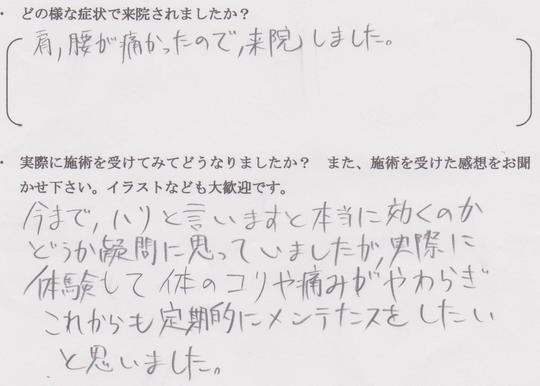 ・ どの様な症状で来院されましたか？
肩,腰が痛かったので,来院しました。
・ 実際に施術を受けてみてどうなりましたか？　また、施術を受けた感想をお聞
かせ下さい。イラストなども大歓迎です。
今まで,ハリと言いますと本当に効くのか
どうか疑問に思っていましたが,実際に
体験して体のコリや痛みがやわらぎ
これからも定期的にメンテナンスをしたい
と思いました。